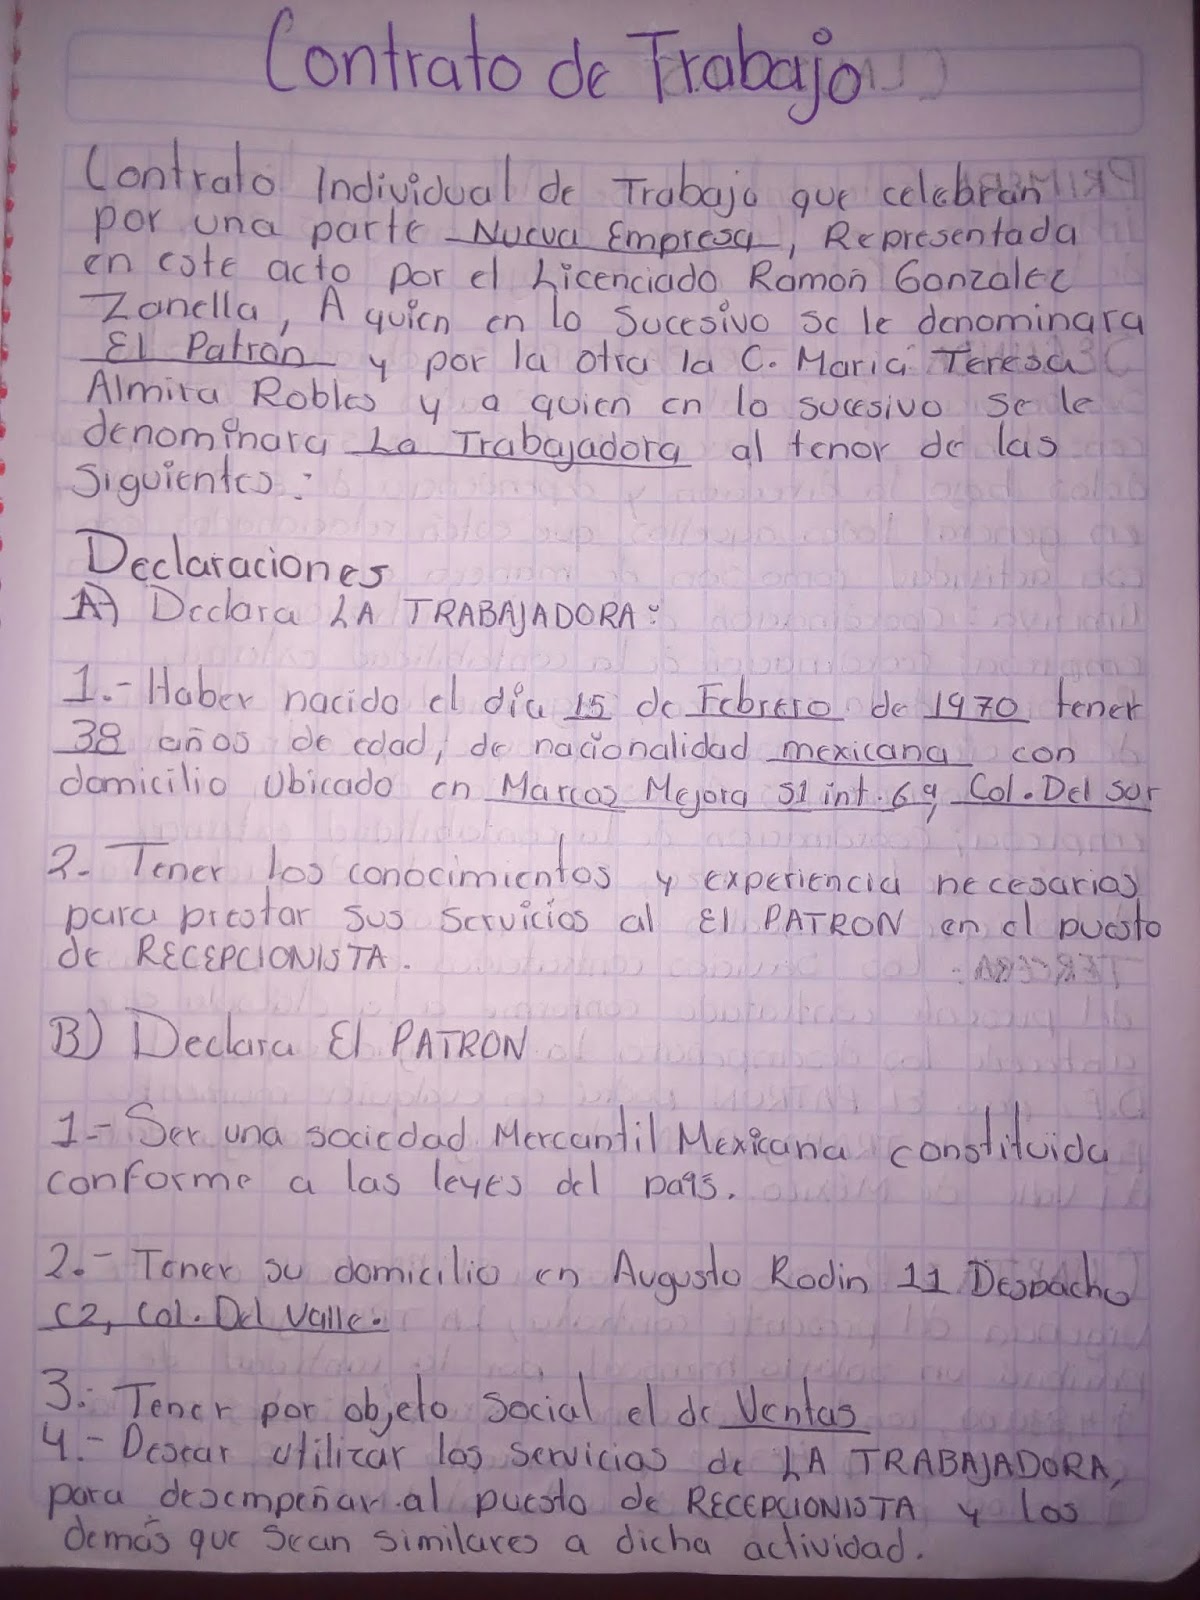 Contrato de Trabajo
Contrato Individual de Trabajo que celebran
por una parte Nueva Empresa, Representada
en este acto por el Licenciado Ramon Gonzalez
Zanella, A quien en lo Sucesivo se le denominara
El Patrón y por la otra la C. Maria Teresa
Almira Robles y a quien en lo sucesivo se le
denominara La Trabajadora al tenor de las
Siguientes:
Declaraciones
A) Declara LA TRABAJADORA:
1.- Haber nacido el día 15 de Febrero de 1970 tener
38 años de edad, de nacionalidad mexicana con
domicilio Ubicado en Marcos Mejora 51 int. 69, Col. Del sur
2.- Tener los conocimientos y experiencia necesarias
para prestar sus servicios al El PATRON en el puesto
de RECEPCIONISTA.
B) Declara El PATRON
1.- Ser una sociedad Mercantil Mexicana constituida
conforme a las leyes del país.
2.- Tener su domicilio en Augusto Rodin 11 Despacho
C2, Col. Del Valle.
3.- Tener por objeto Social el de Ventas
4.- Desear utilizar los servicios de LA TRABAJADORA,
para desempeñar al puesto de RECEPCIONISTA y los
demás que sean similares a dicha actividad.